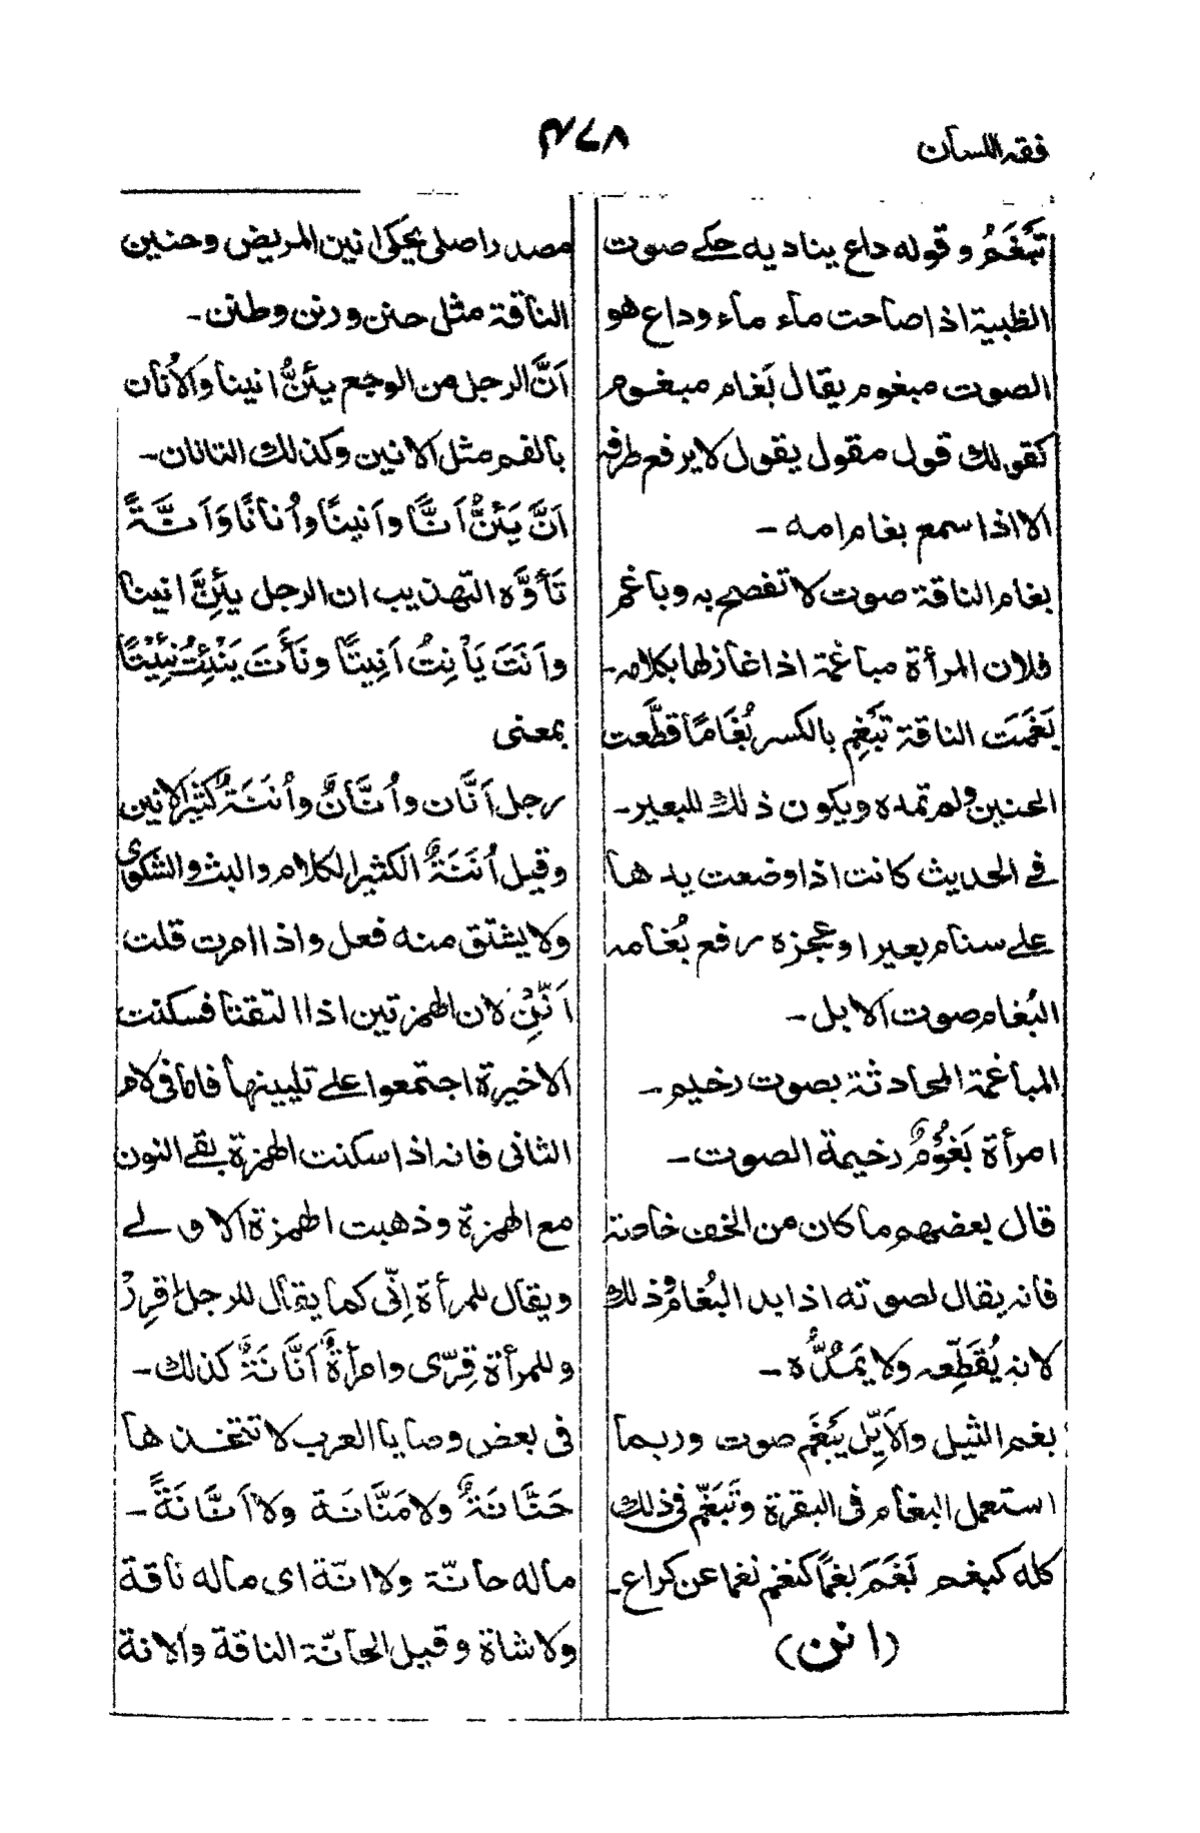 فقہ اللسان
۳۷۸
تَبْغَمُ وقوله داع يناديه حكے صوت
الظبية اذا صاحت ماء ماء وداع هو
الصوت مبغوم يقال بَغام مبغوم
كقولك قول مقول يقول لا يرفع طرفه
الا اذا سمع بغام امه -
بغام الناقة صوت لا تفصح به وباغم
فلان المرأة مباغمة اذا غازلها بكلامه -
بَغَمَت الناقة تَبْغِم بالكسر بُغَامًا قطَّعت
الحنين ولم تمده ويكون ذلك للبعير -
فے الحديث كانت اذا وضعت يدها
علے سنام بعير او عجزه رفع بُغامه
البُغام صوت الابل -
المباغمة المحادثة بصوت رخيم -
امرأة بَغُوْمٌ رخيمة الصوت -
قال بعضهم ما كان من الخف خاصة
فانه يقال لصوته اذا بدا البُغام وذلك
لانه يُقَطِّعه ولا يَمُدُّه -
بغم الثيل والاَيِّل يَبْغَم صوت وربما
استعمل البغام فى البقرة وتَبَغَّم فى ذلك
كله كبغم بَغَمَ بغمًا كنغم نغما عن كراع -
(ا نن)
مصدر اصلى يحكى انين المريض وحنين
الناقة مثل حنن ورنن وطنن -
اَنَّ الرجل من الوجع يئنُّ انينا والاُنان
بالضم مثل الانين وكذلك التانان -
اَنَّ يَئِنُّ اَنًّا واَنينًا واُنانًا وَاَنَّةً
تَأوَّه التهذيب ان الرجل يئِنَّ انينا
واَنَتَ يَاْنِتُ اَنِيتًا ونَأَتَ يَنْئِتُ نئِيْتًا
بمعنى
رجل اَنَّان واُنَّانٌ واُنَنَةٌ كثير الانين
وقيل اُنَنَةٌ الكثير الكلام والبث والشكوى
ولا يشتق منه فعل واذا امرت قلت
اَنِّنْ لان الهمزتين اذا التقتا فسكنت
الاخيرة اجتمعوا علے تليينها فاما فى لام
الثانى فانه اذا سكنت الهمزة بقے النون
مع الهمزة وذهبت الهمزة الاولے
ويقال للمرأة اِنّى كما يقال للرجل اقرِرْ
وللمرأة قِرّى وامرأةٌ اَنَّانَةٌ كذلك -
فى بعض وصايا العرب لا تتخذها
حَنَّانَةٌ ولا مَنَّانَة ولا اَنَّانَةً -
ماله حانّة ولا انّة اى ماله ناقة
ولا شاة وقيل الحانّة الناقة والانة